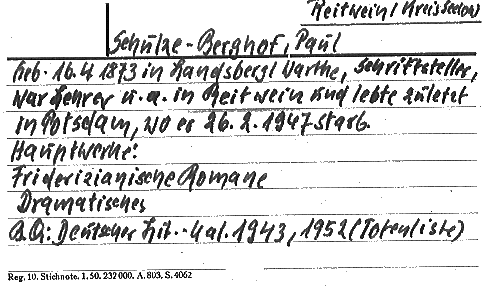 Reitwein/Kreis Seelow
Schulze-Berghof, Paul
Geb. 16.4 1873 in Landsberg/Warthe, Schriftsteller,
war Lehrer u.a. in Reitwein und lebte zuletzt
in Potsdam, wo er 26.2.1947 starb.
Hauptwerke:
Friderizianische Romane
Dramatisches
Deutscher Lit.-Kal. 1943, 1952 (Totenliste)
Reg. 10. Stichnote. 1. 50. 232 000. A. 803, S. 4062